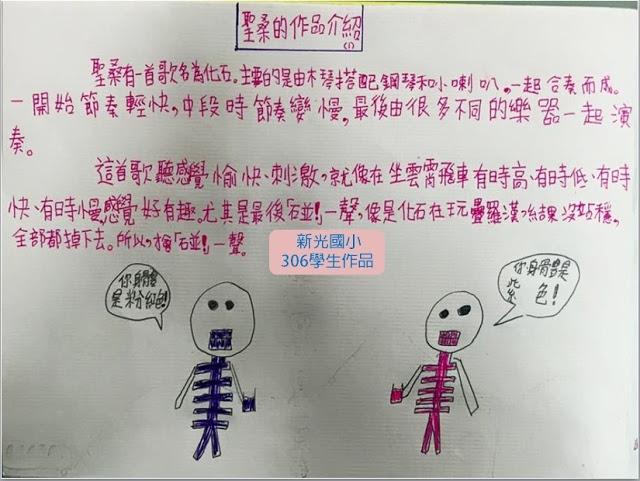 聖桑的作品介紹
(1)
聖桑有一首歌名為化石。主要的是由木琴搭配鋼琴和小喇叭,一起合奏而成。
一開始節奏輕快,中段時節奏變慢,最後由很多不同的樂器一起演
奏。
這首歌聽感覺愉快、刺激,就像在坐雲霄飛車有時高、有時低、有時
快、有時慢感覺好有趣。尤其是最後「碰!」一聲,像是化石在玩疊羅漢,結果沒站穩,
全部都掉下去。所以,換「碰!」一聲。
新光國小
306學生作品
你身體
是粉紅色!
你身體是
紫色!